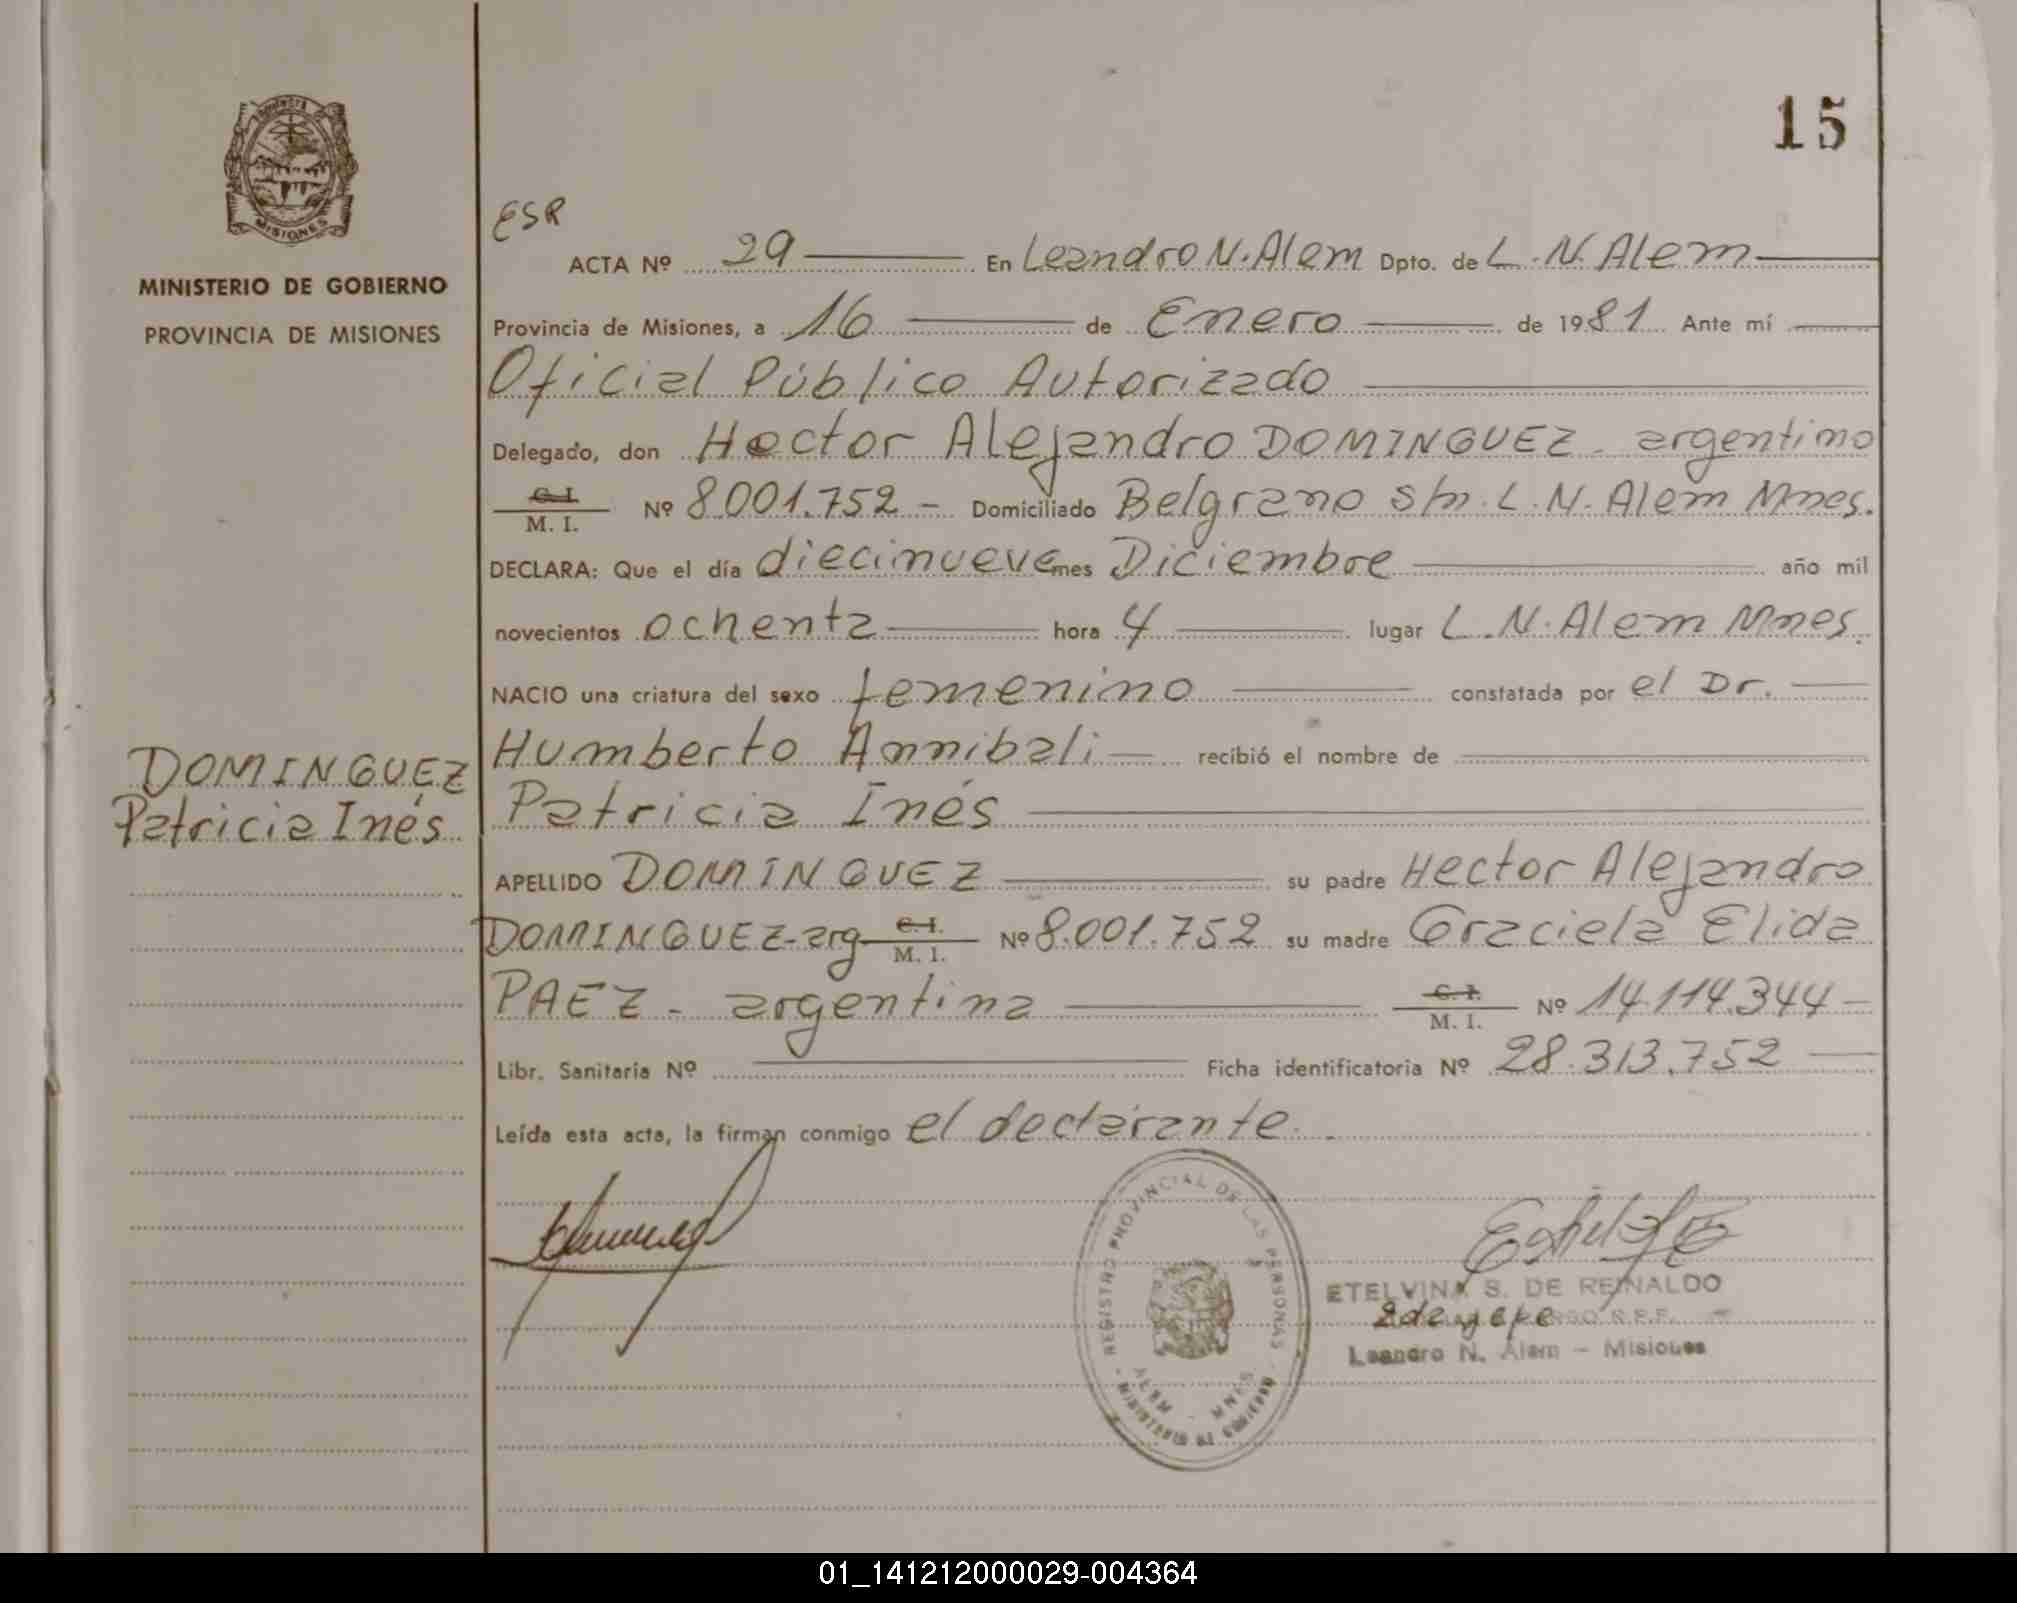 15
MISIONES
MINISTERIO DE GOBIERNO
PROVINCIA DE MISIONES
DOMINGUEZ
Patricia Inés
ESR
ACTA Nº 29 En Leandro N. Alem Dpto. de L. N. Alem
Provincia de Misiones, a 16 de Enero de 1981 Ante mí
Oficial Público Autorizado
Delegado, don Hector Alejandro DOMINGUEZ - argentino
C. I. M. I. Nº 8.001.752 - Domiciliado Belgrano s/n. L. N. Alem Mnes.
DECLARA: Que el día diecinueve mes Diciembre año mil
novecientos ochenta hora 4 lugar L. N. Alem Mnes.
NACIO una criatura del sexo femenino constatada por el Dr.
Humberto Annibali recibió el nombre de
Patricia Inés
APELLIDO DOMINGUEZ su padre Hector Alejandro
DOMINGUEZ - arg C. I. M. I. Nº 8.001.752 su madre Graciela Elida
PAEZ - argentina C. I. M. I. Nº 14.114.344 -
Libr. Sanitaria Nº Ficha identificatoria Nº 28.313.752
Leída esta acta, la firman conmigo el declarante.
REGISTRO PROVINCIAL DE LAS PERSONAS
ALEM - MNES
MINISTERIO DE GOBIERNO
ETELVINA S. DE REINALDO
Leandro N. Alem - Misiones
01_141212000029-004364